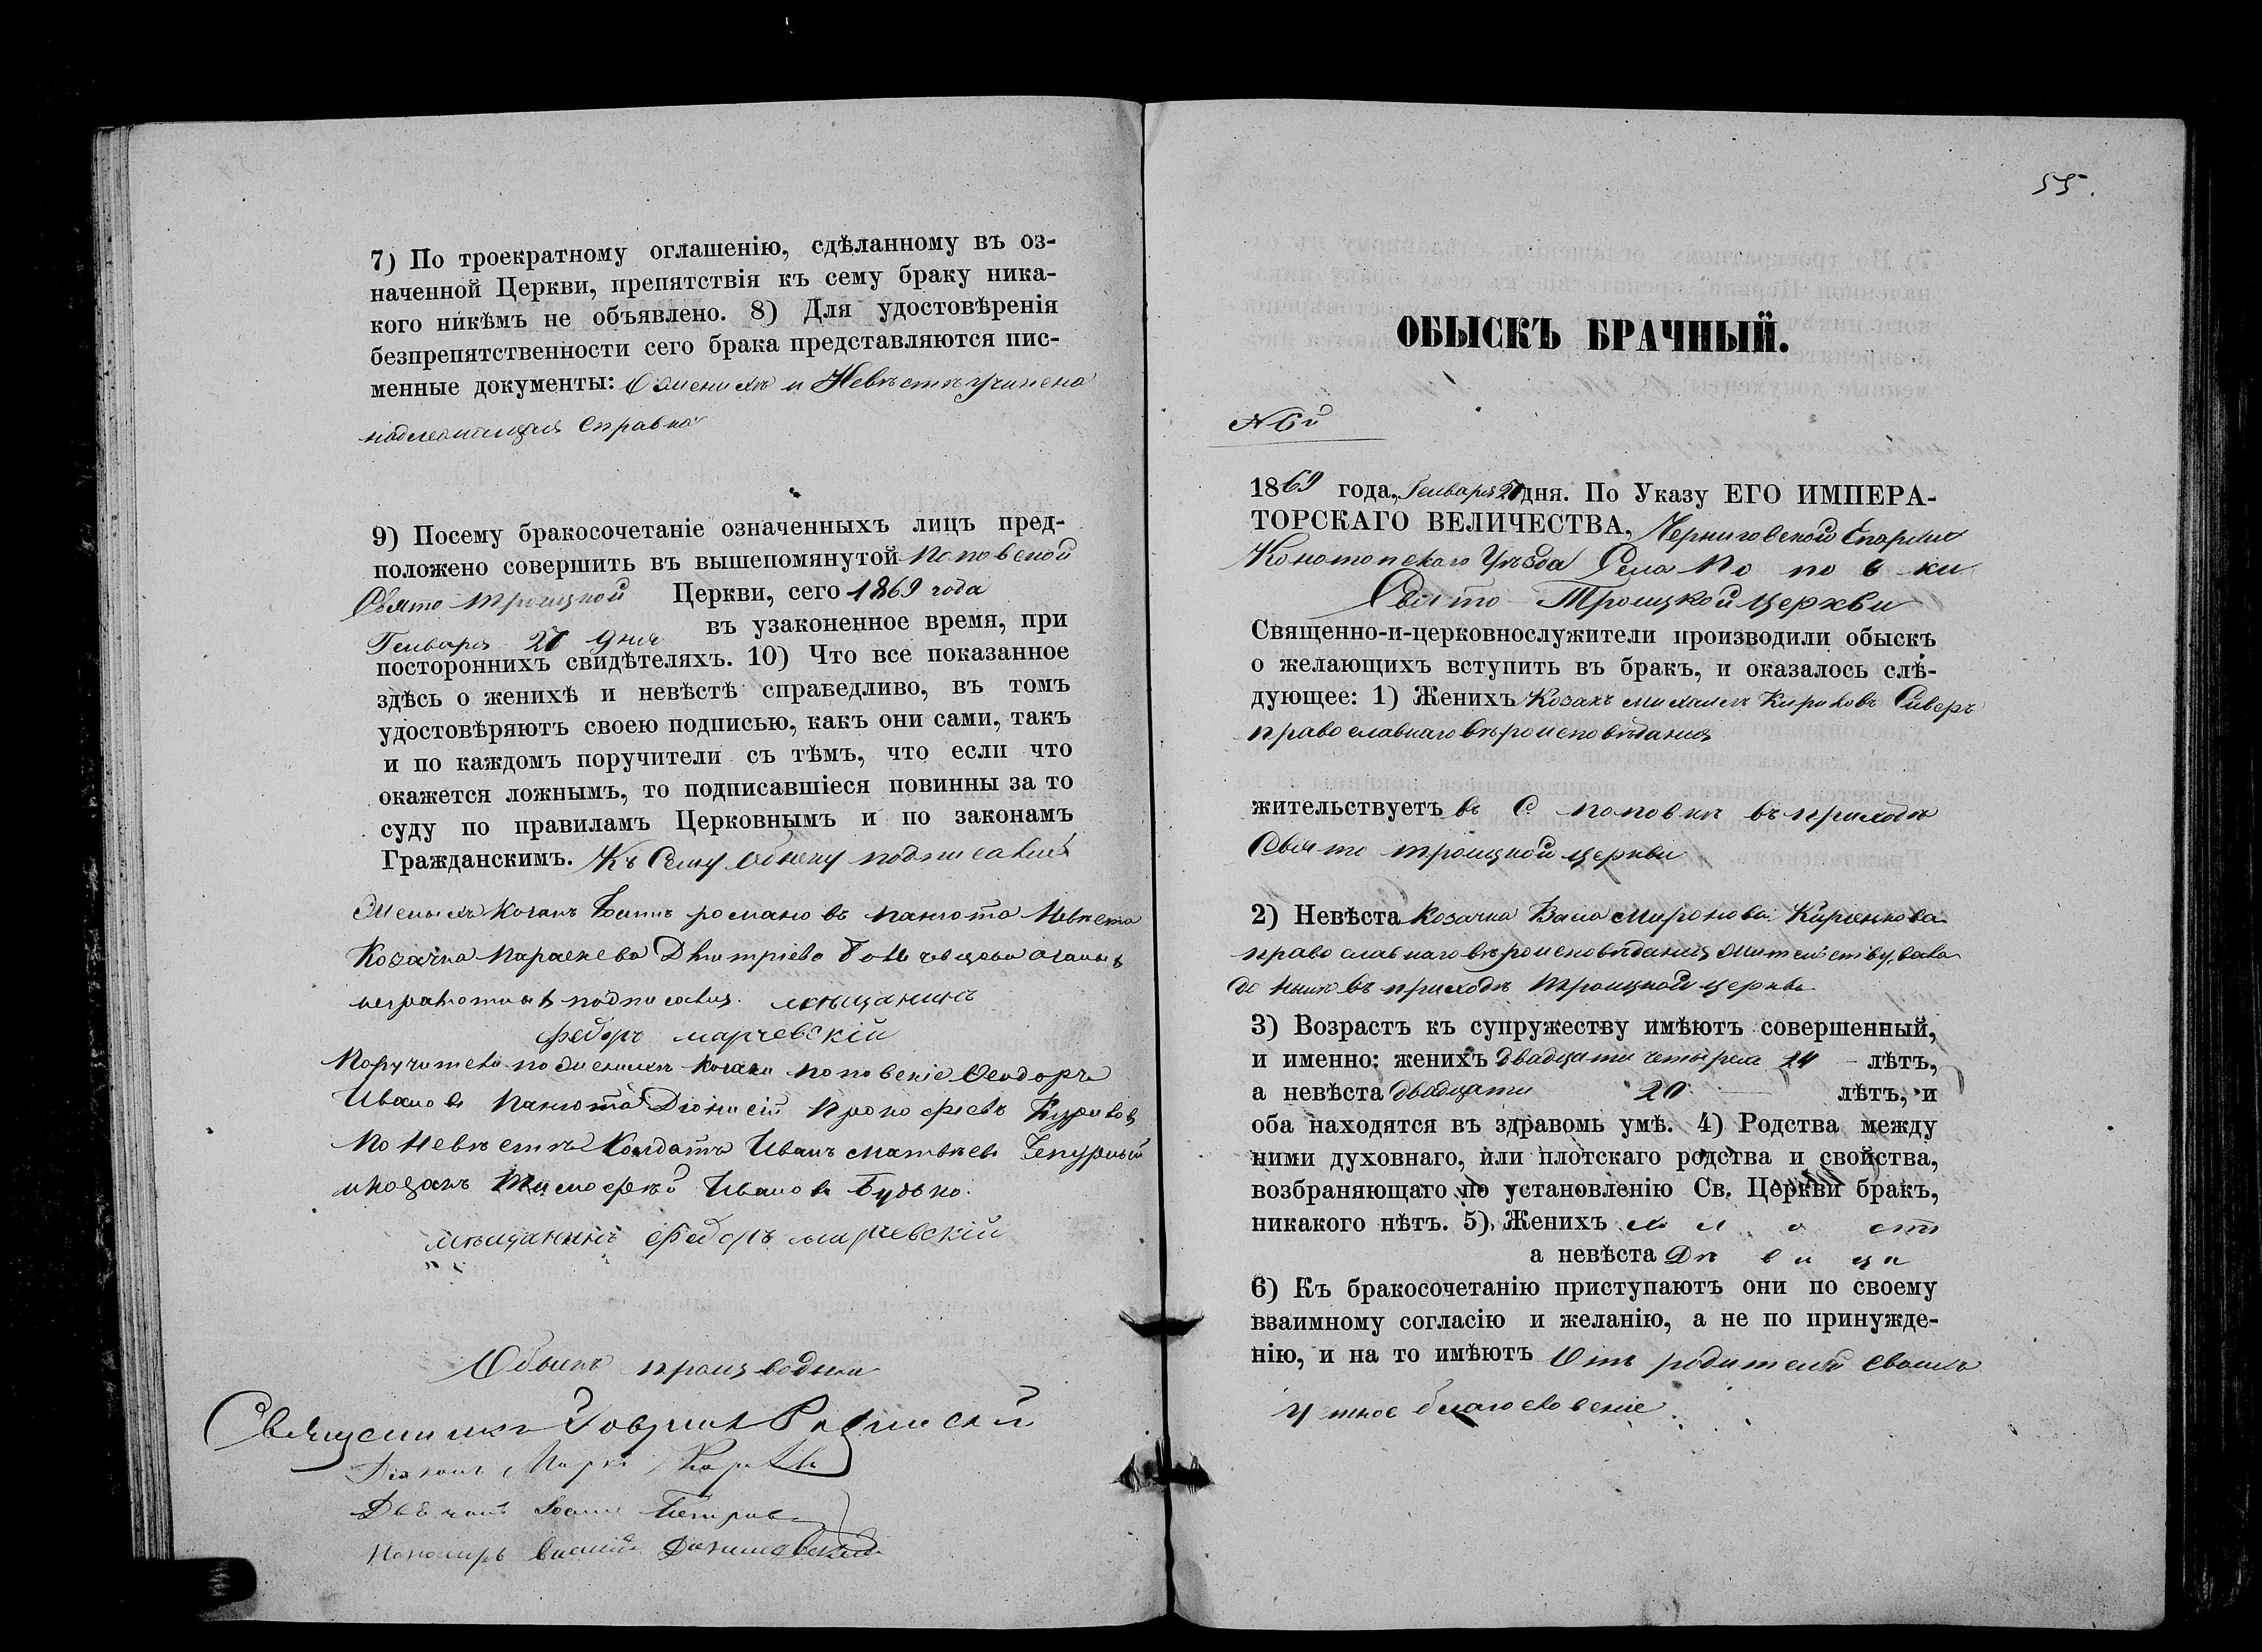 7) По троекратному оглашенію, сдѣланному въ оз-
наченной Церкви, препятствія къ сему браку ника-
кого никѣмъ не объявлено. 8) Для удостовѣренія
безпрепятственности сего брака представляются пис-
менные документы: О женихѣ и Невѣстѣ учинена
надлежащая Справка
9) Посему бракосочетаніе означенныхъ лицъ пред-
положено совершить въ вышепомянутой Поповской
Свято Троицкой Церкви, сего 1869 года
Генваря 27 дня въ узаконенное время, при
постороннихъ свидѣтеляхъ. 10) Что все показанное
здѣсь о женихѣ и невѣстѣ справедливо, въ томъ
удостовѣряютъ своею подписью, какъ они сами, такъ
и по каждомъ поручители съ тѣмъ, что если что
окажется ложнымъ, то подписавшіеся повинны за то
суду по правиламъ Церковнымъ и по законамъ
Гражданскимъ. Къ Сему Обыску подписались
Женихъ Козакъ Іоаннъ романовъ панюта Невѣста
Козачка Параскева Дмитріева
неграмотны подписался мѣщанинъ
федоръ марчевскій
Поручители по женихѣ козаки поповскіе Феодоръ
Ивановъ Панюта Діонисій Прокофіевъ
По Невѣстѣ Солдатъ Иванъ Матвѣевъ Чепурный
и козакъ Тимофѣй Ивановъ Будько.
мѣщанинъ федоръ марчевскій
Обыскъ производили
Священникъ Гавріилъ
Діаконъ Марко
Дьячокъ Іоаннъ Петровъ
Пономарь Василій
55.
ОБЫСКЪ БРАЧНЫЙ.
№ 6й
1869 года, Генваря 27 дня. По Указу ЕГО ИМПЕРА-
ТОРСКАГО ВЕЛИЧЕСТВА, Черниговской Епархіи
Конотопскаго Уѣзда Села Поповки
Свято-Троицкой Церкви
Священно-и-церковнослужители производили обыскъ
о желающихъ вступить въ бракъ, и оказалось слѣ-
дующее: 1) Женихъ Козакъ михаилъ Кириковъ Сиверъ
православнаго вѣроисповѣданія
жительствуетъ въ С поповкѣ въ приходѣ
Свято троицкой церкви
2) Невѣста Козачка Васса Миронова
православнаго вѣроисповѣданія жительствовала
до нынѣ въ приходѣ Троицкой церкви
3) Возрастъ къ супружеству имѣютъ совершенный,
и именно: женихъ двадцати четырехъ 24 лѣтъ,
а невѣста двадцати 20 лѣтъ, и
оба находятся въ здравомъ умѣ. 4) Родства между
ними духовнаго, или плотскаго родства и свойства,
возбраняющаго по установленію Св. Церкви бракъ,
никакого нѣтъ. 5) Женихъ холост
а невѣста Дѣвица
6) Къ бракосочетанію приступаютъ они по своему
взаимному согласію и желанію, а не по принужде-
нію, и на то имѣютъ Отъ родителей своихъ
Устное благословеніе.